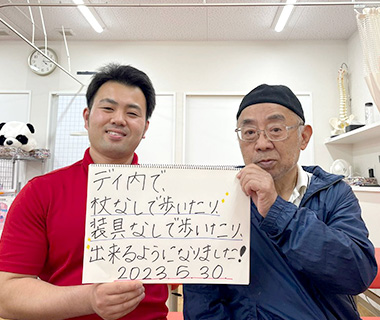 デイ内で、
杖なしで歩いたり、
装具なしで歩いたり、
出来るようになりました!
2023.5.30